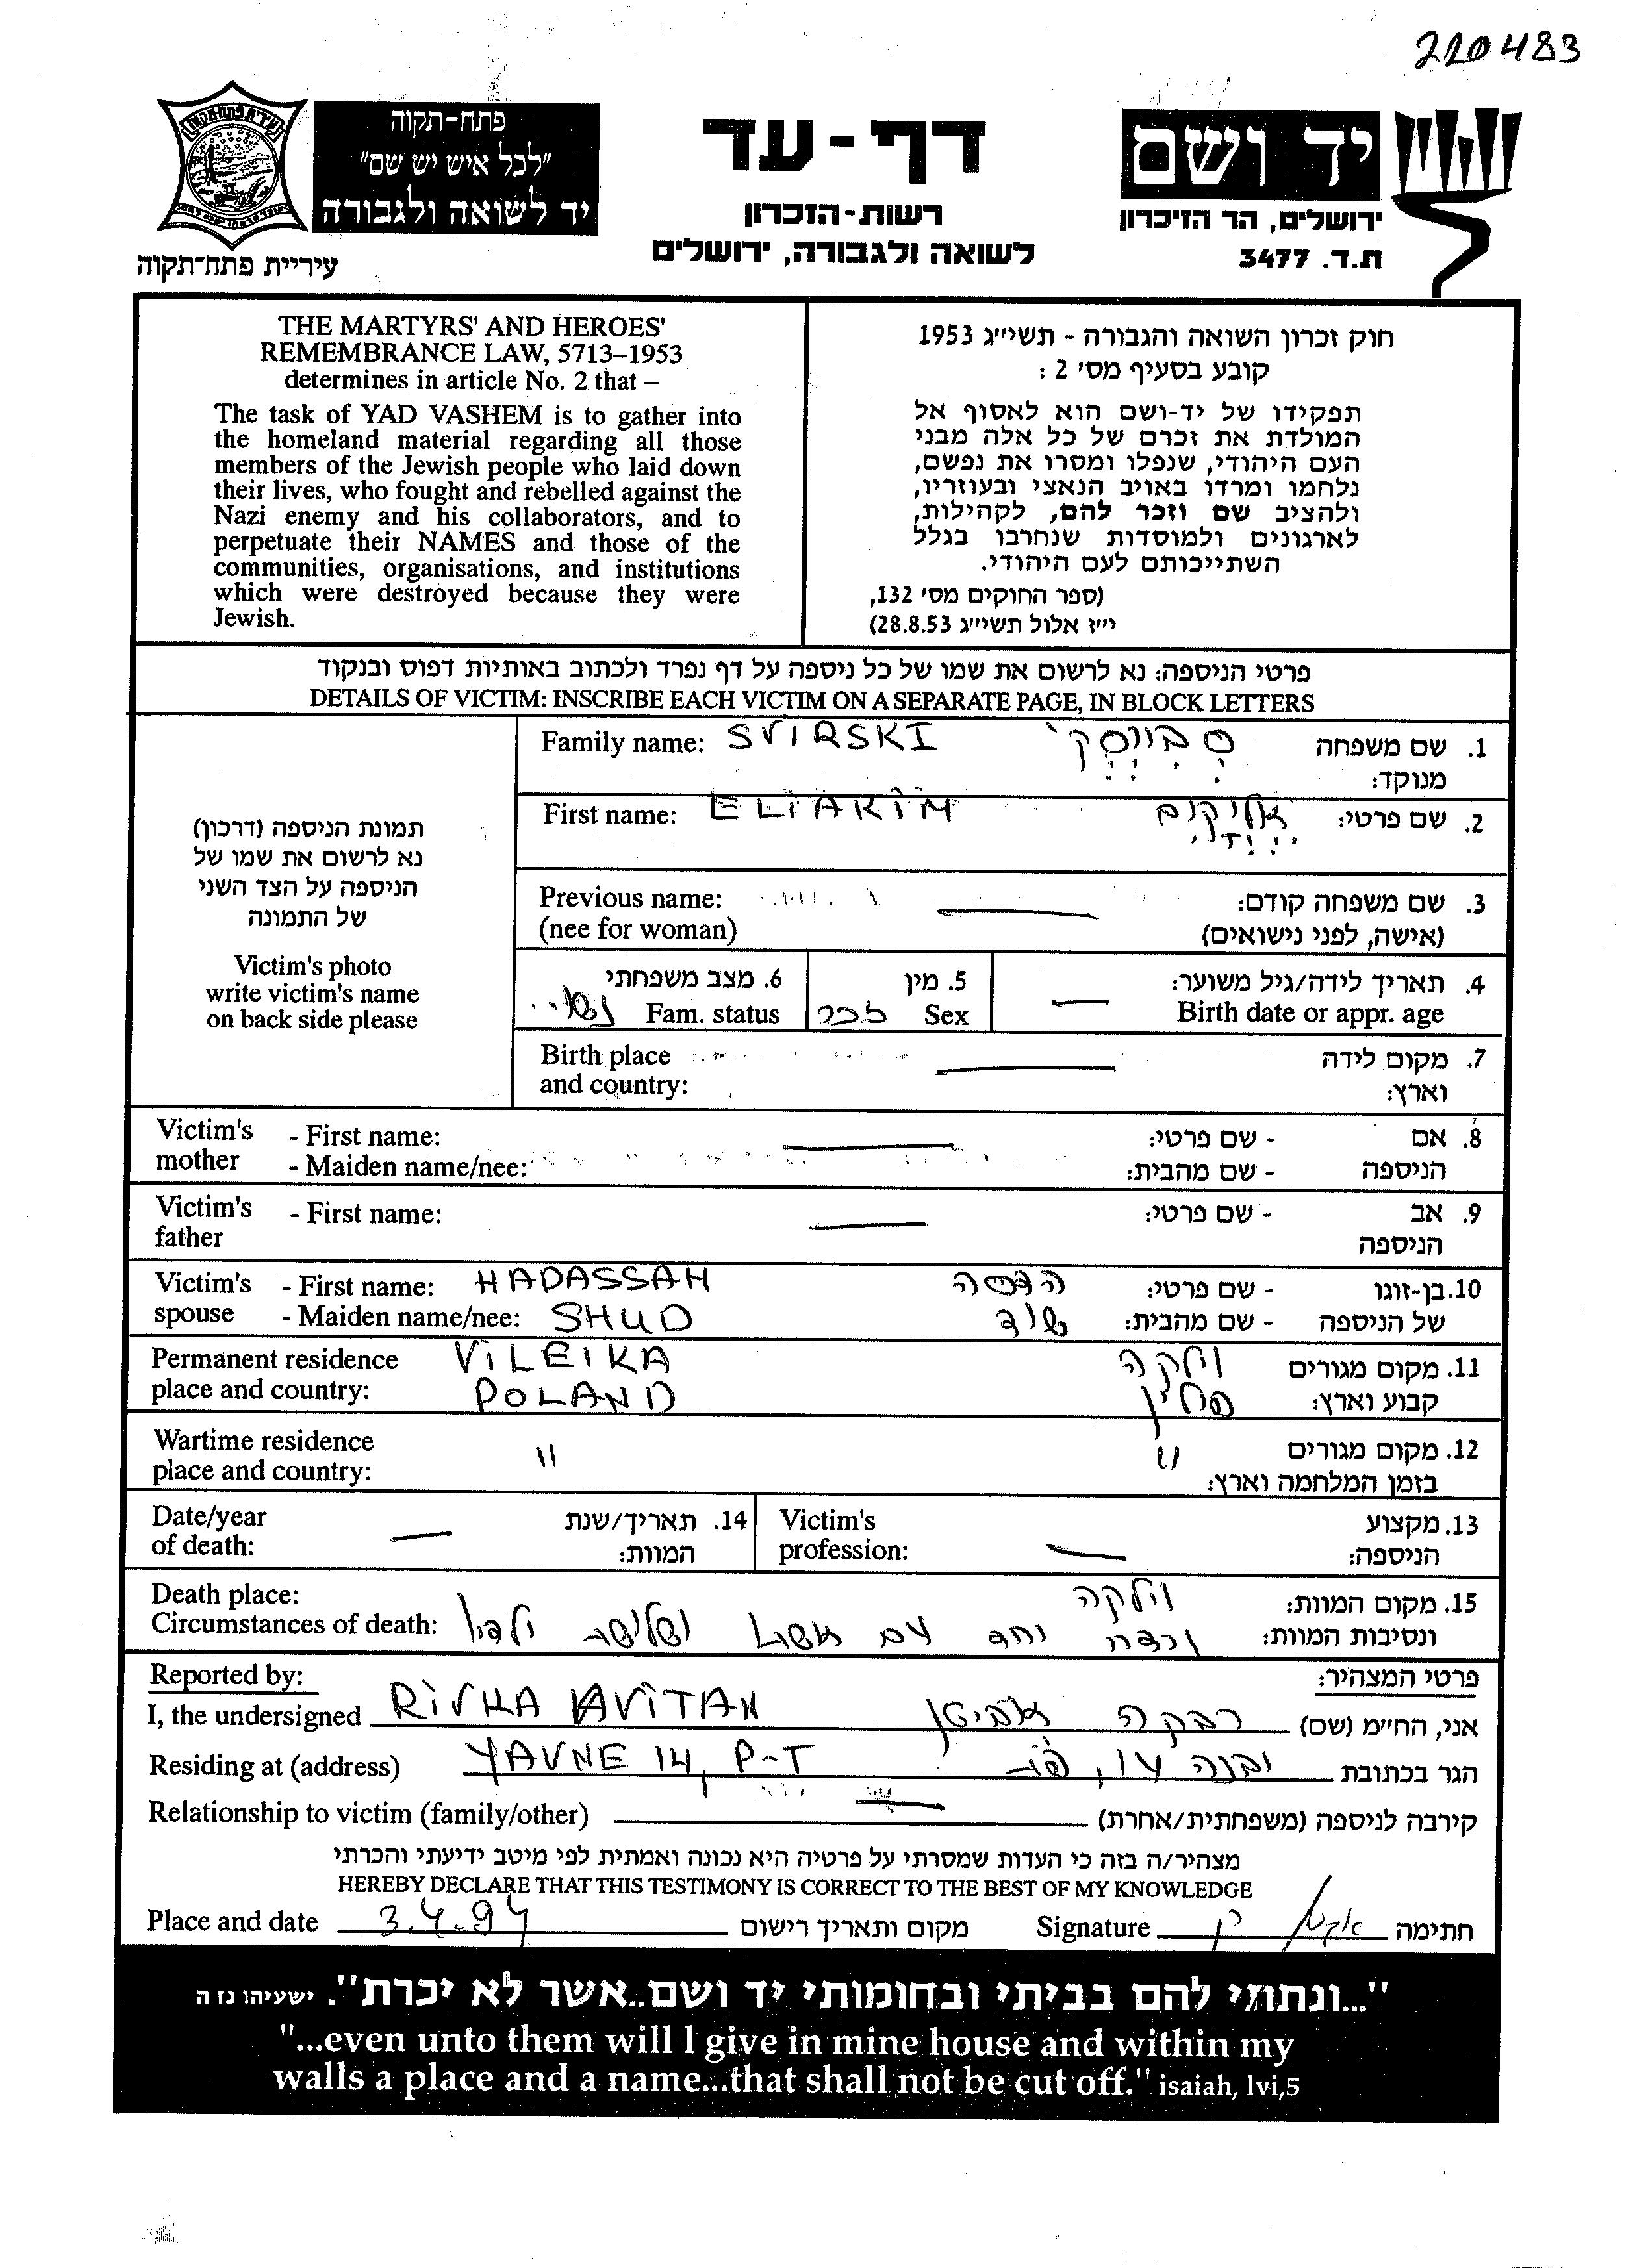 220483
פתח-תקוה
"לכל איש יש שם"
יד לשואה ולגבורה
עיריית פתח-תקוה
דף-עד
רשות-הזכרון
לשואה ולגבורה, ירושלים
יד ושם
ירושלים, הר הזיכרון
ת.ד. 3477
THE MARTYRS' AND HEROES'
REMEMBRANCE LAW, 5713–1953
determines in article No. 2 that –
The task of YAD VASHEM is to gather into
the homeland material regarding all those
members of the Jewish people who laid down
their lives, who fought and rebelled against the
Nazi enemy and his collaborators, and to
perpetuate their NAMES and those of the
communities, organisations, and institutions
which were destroyed because they were
Jewish.
חוק זכרון השואה והגבורה - תשי״ג 1953
קובע בסעיף מס׳ 2 :
תפקידו של יד-ושם הוא לאסוף אל
המולדת את זכרם של כל אלה מבני
העם היהודי, שנפלו ומסרו את נפשם,
נלחמו ומרדו באויב הנאצי ובעוזריו,
ולהציב שם וזכר להם, לקהילות,
לארגונים ולמוסדות שנחרבו בגלל
השתייכותם לעם היהודי.
(ספר החוקים מס׳ 132,
י״ז אלול תשי״ג 28.8.53)
פרטי הניספה: נא לרשום את שמו של כל ניספה על דף נפרד ולכתוב באותיות דפוס ובנקוד
DETAILS OF VICTIM: INSCRIBE EACH VICTIM ON A SEPARATE PAGE, IN BLOCK LETTERS
תמונת הניספה (דרכון)
נא לרשום את שמו של
הניספה על הצד השני
של התמונה
Victim's photo
write victim's name
on back side please
Family name: SVIRSKI 1. שם משפחה
מנוקד:
First name: ELIAKIM אליקים 2. שם פרטי:
Previous name: 3. שם משפחה קודם:
(nee for woman) (אישה, לפני נישואים)
4. תאריך לידה/גיל משוער: 5. מין 6. מצב משפחתי
Birth date or appr. age Sex זכר Fam. status נשוי
Birth place 7. מקום לידה
and country: וארץ:
Victim's mother - First name: 8. אם - שם פרטי:
- Maiden name/nee: הניספה - שם מהבית:
Victim's father - First name: 9. אב - שם פרטי:
הניספה
Victim's - First name: HADASSAH הדסה 10. בן-זוגו - שם פרטי:
spouse - Maiden name/nee: SHUD שוד של הניספה - שם מהבית:
Permanent residence VILEIKA וילקה 11. מקום מגורים
place and country: POLAND פולין קבוע וארץ:
Wartime residence " " 12. מקום מגורים
place and country: בזמן המלחמה וארץ:
Date/year 14. תאריך/שנת Victim's 13. מקצוע
of death: המוות: profession: הניספה:
Death place: וילקה 15. מקום המוות:
Circumstances of death: נרצח יחד עם אשתו ושלושת ילדיו ונסיבות המוות:
Reported by: פרטי המצהיר:
I, the undersigned RIVKA AVITAN רבקה אביטן אני, החי״מ (שם)
Residing at (address) YAVNE 14, P-T יבנה 14, פ"ת הגר בכתובת
Relationship to victim (family/other) קירבה לניספה (משפחתית/אחרת)
מצהיר/ה בזה כי העדות שמסרתי על פרטיה היא נכונה ואמתית לפי מיטב ידיעתי והכרתי
HEREBY DECLARE THAT THIS TESTIMONY IS CORRECT TO THE BEST OF MY KNOWLEDGE
Place and date 3.4.94 מקום ותאריך רישום Signature חתימה
"...ונתתי להם בביתי ובחומותי יד ושם..אשר לא יכרת". ישעיהו נז ה
"...even unto them will I give in mine house and within my
walls a place and a name...that shall not be cut off." isaiah, lvi,5